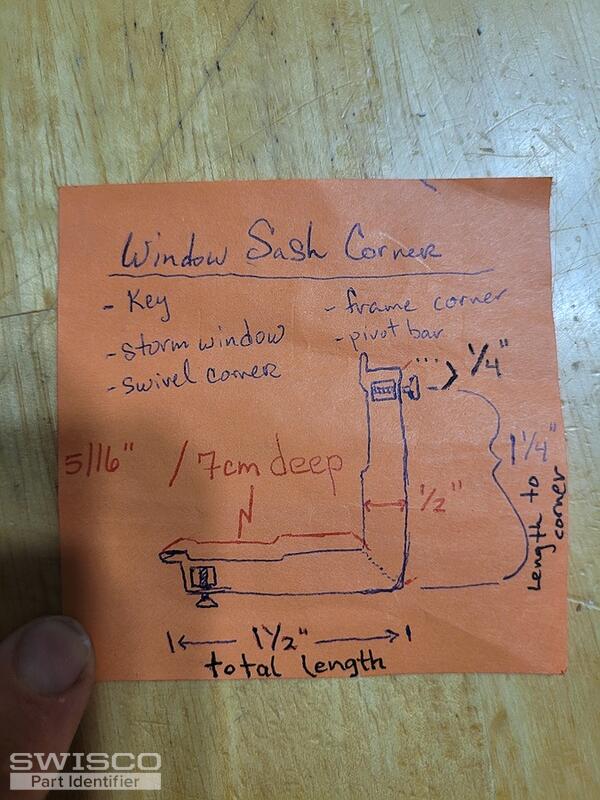 Window Sash Corner
- Key
- storm window
- swivel corner
- frame corner
- pivot bar
1/4"
1 1/4"
Length to corner
5/16" / 7cm deep
1/2"
1 1/2"
total length
SWISCO
Part Identifier